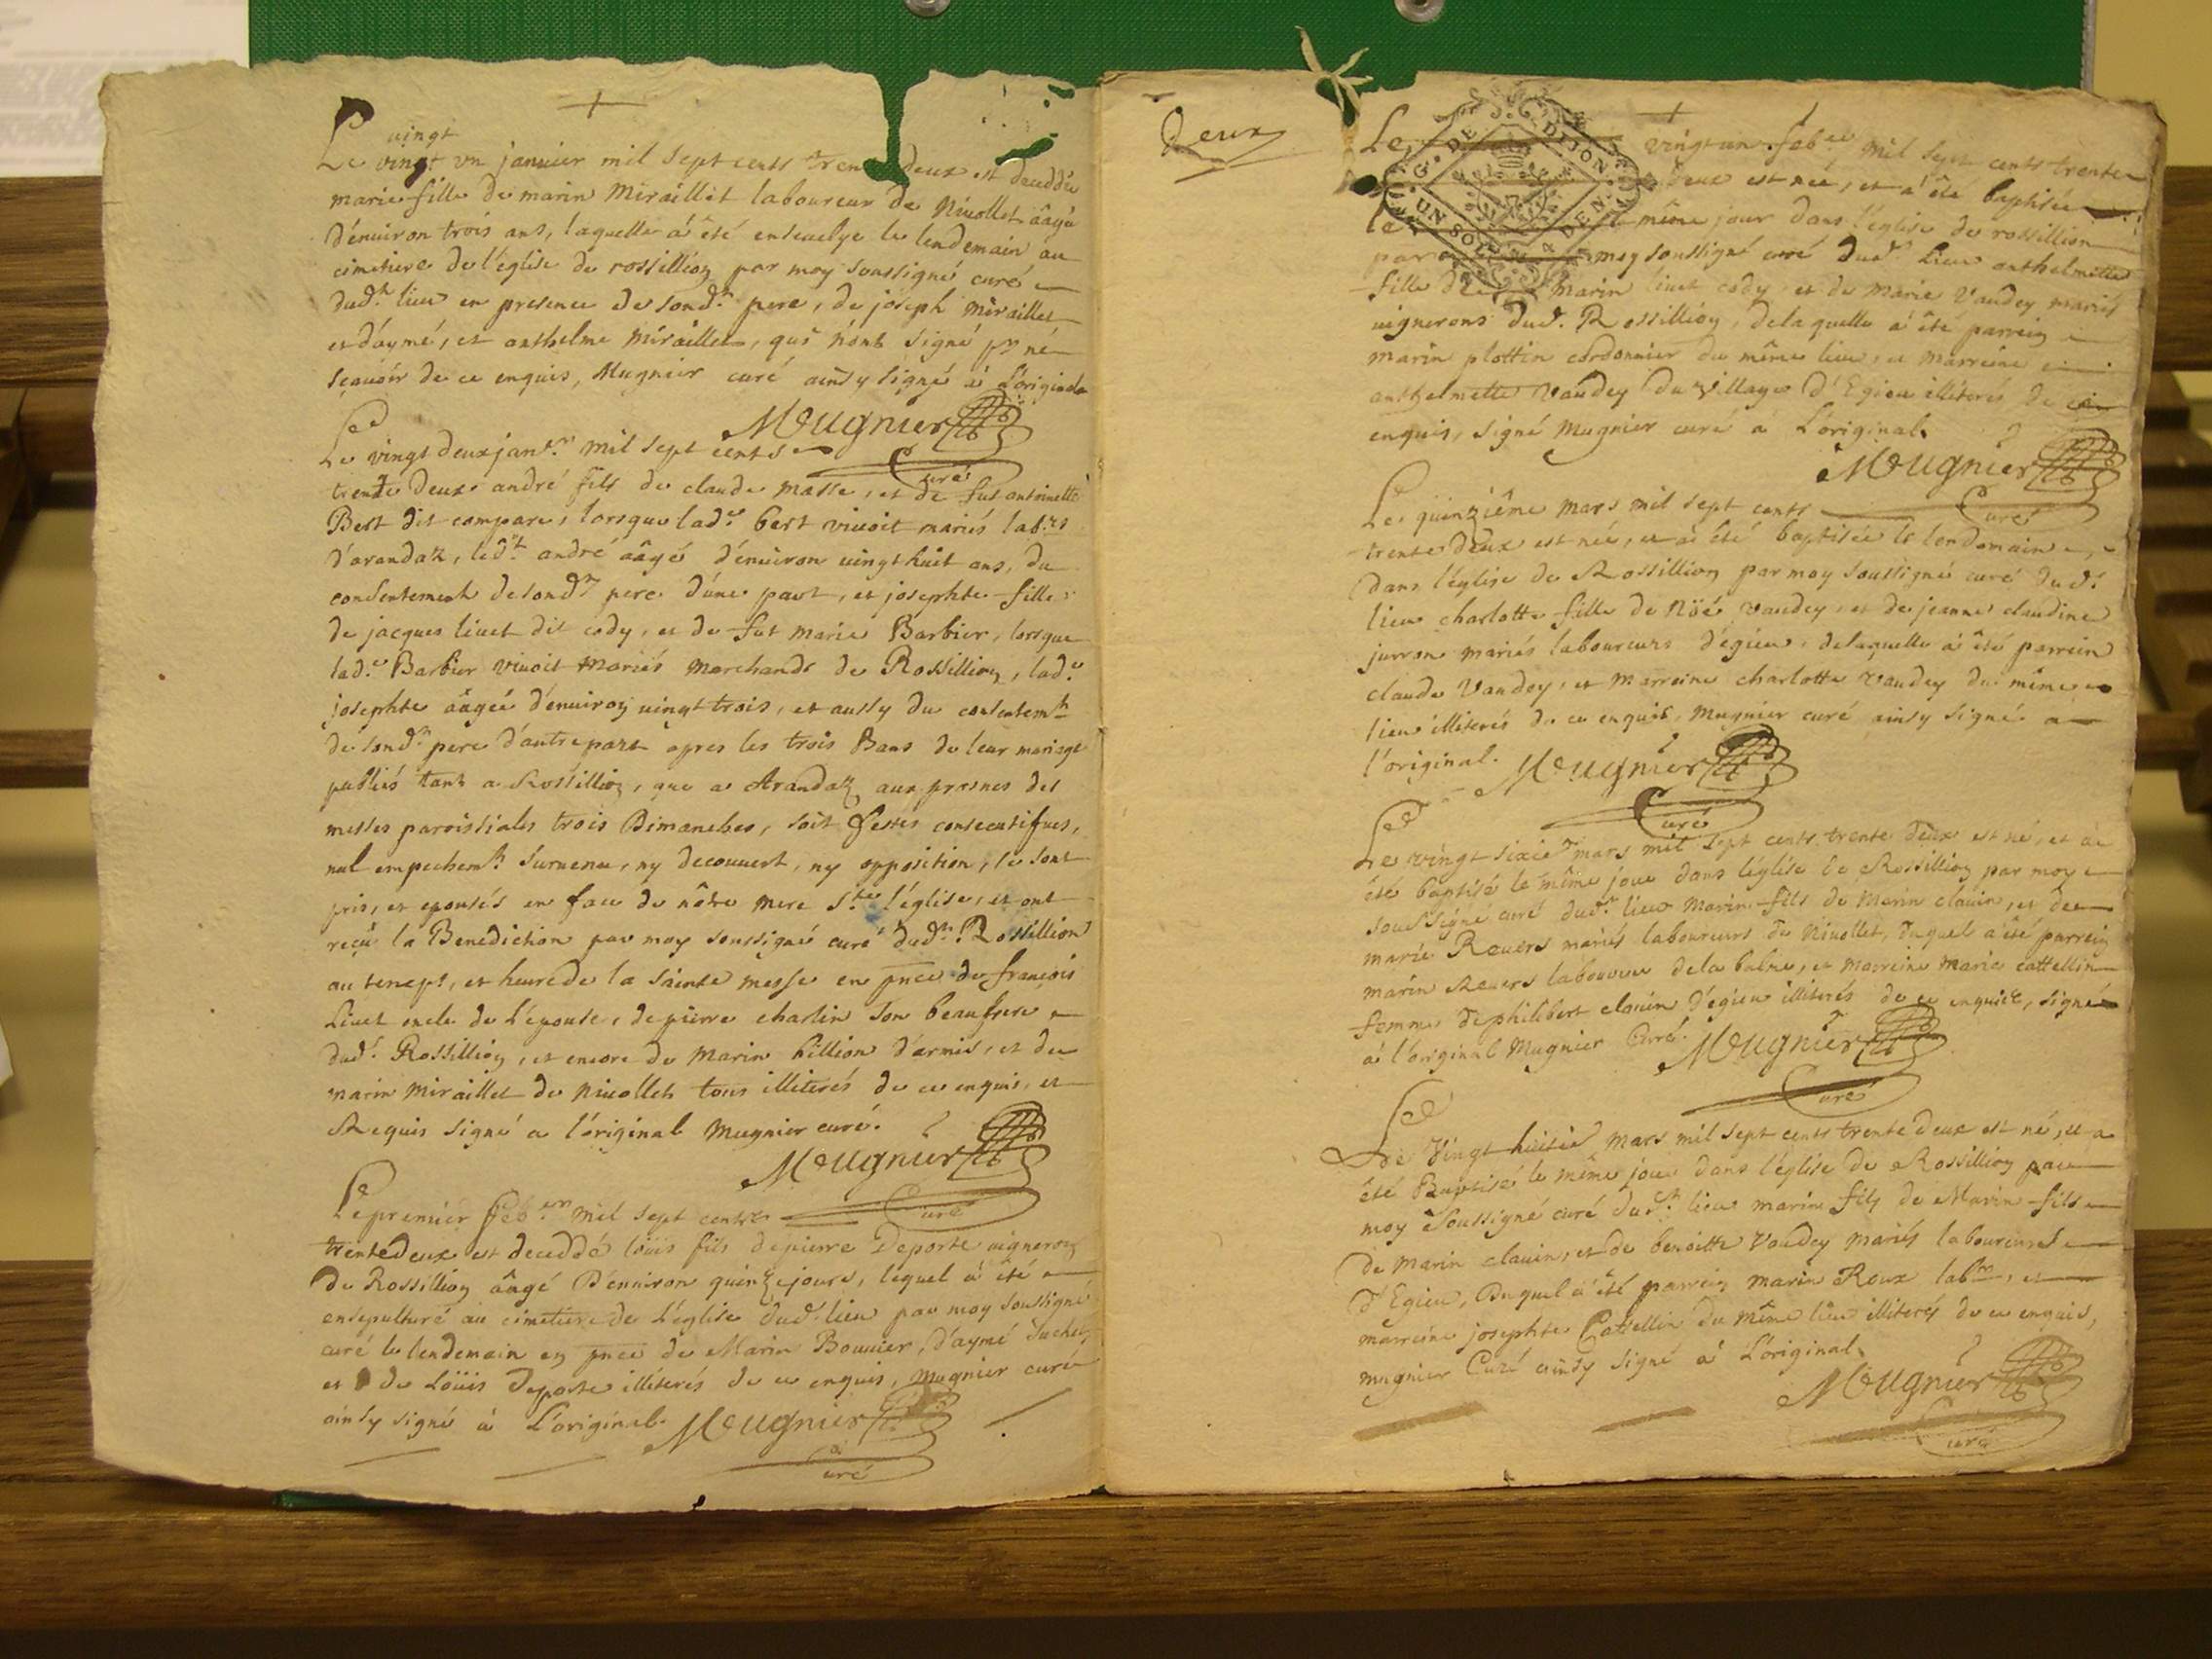 vingt
Le vingt vn januier mil sept cents tren deux est deceddée
marie fille de marin Miraillet laboureur de Niuollet ââgée
d'enuiron trois ans, laquelle a été enseuelye le lendemain au
cimetiere de l'église de rossillion par moy soussigné curé
dud.t lieu en presence de sond.t pere, de joseph Miraillet
et d'aymé, et anthelme Miraillet, qui n'ont signé p.r ne
sçauoir de ce enquis, Mugnier curé ainsy signé à L'original
Meugnier
curé
Le vingt deux jan.er mil sept cents
trente deux andré fils de claude masse, et de fut antoinette
Bert dit compare, lorsque lad.e bert viuoit mariés lab.rs
d'arandaz, led.t andré ââgé d'enuiron vingt huit ans, du
consentement de sond.t pere d'une part, et josephte fille
de jacques liuet dit cody, et de fut marie Barbier, lorsque
lad.e Barbier viuoit mariés marchands de Rossillion, lad.e
josephte ââgée d'enuiron vingt trois, et aussy du consentem.t
de sond.t pere d'autre part apres les trois Bans de leur mariage
publiés tant a Rossillion, que a Arandaz aux prosnes des
messes paroissiales trois Dimanches, soit festes consecutifues,
nul empechem.t suruenu, ny decouuert, ny opposition, se sont
pris, et epousés en face de nôtre mere S.te l'église, et ont
reçu la Benediction par moy soussigné curé dud.t Rossillion
au temps, et heure de la sainte messe en pnce de françois
Liuet oncle de L'epouse, de pierre charlin son beaufrere
dud.t Rossillion, et encore de Marin hillion d'armis, et de
marin Miraillet de Niuollet tous illiterés de ce enquis, et
Requis signé a l'original Mugnier curé.
Meugnier
curé
Le premier feb.er mil sept cents
trente deux est deceddé loüis fils de pierre Deporte vigneron
de Rossillion ââgé D'enuiron quinze jours, lequel a été
ensepulturé au cimetiere de L'église dud.t lieu par moy soussigné
curé le lendemain en pnce de Marin Bouuier, d'aymé
et de Loüis Deporte illiterés de ce enquis, Mugnier curé
ainsy signé à L'original. Meugnier
curé
Deux
UN SOL G. DE DIJON DEN.
Le vingt un feb.er mil sept cents trente
deux est neé, et a été baptisée
le même jour dans l'église de rossillion
par moy soussigné curé dud.t Lieu anthelmette
fille de marin liuet cody et de marie Vaudey mariés
vignerons dud.t Rossillion, de laquelle a été parrein
marin plottin cordonnier du même lieu, et marreine
anthelmette Vaudey du village d'Egieu illiterés de ce
enquis, signé mugnier curé à L'original.
Meugnier
curé
Le quinzième mars mil sept cents
trente deux est neé, et a été baptisée le lendemain
dans l'église de Rossillion par moy soussigné curé dud.t
lieu charlotte fille de Nöé Vaudey, et de jeanne claudine
jurron mariés laboureurs d'égieu, de laquelle a été parrein
claude Vaudey, et marreine charlotte Vaudey du même
lieu illiterés de ce enquis, Mugnier curé ainsy signé a
l'original. Meugnier
curé
Le vingt sixie mars mil sept cents trente deux est né, et a
été baptisé le même jour dans l'église de Rossillion par moy
soussigné curé dud.t lieu marin fils de Marin clauin, et de
marie Reuers mariés laboureurs de Niuollet, duquel a été parrein
marin Reuers laboureur de la balme, et marreine marie cattellin
femme de philibert clauin d'égieu illiterés de ce enquis, signé
à l'original Mugnier Curé. Meugnier
curé
Le Vingt huitie mars mil sept cents trente deux est né, et a
été Baptisé le même jour dans l'église de Rossillion par
moy soussigné curé dud.t lieu marin fils de Marin fils
de Marin clauin, et de benoitte Vaudey mariés laboureurs
d'Egieu, Duquel a été parrein marin Roux lab.r, et
marreine josephte Cattellin du même lieu illiterés de ce enquis,
mugnier Curé ainsy signé à L'original.
Meugnier
curé